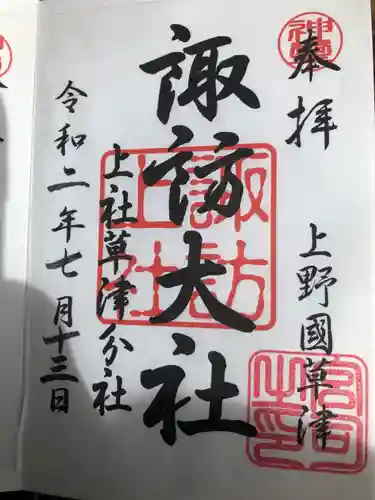 奉拝
上野國草津
諏訪大社
諏訪
上社
上社草津分社
令和二年七月十三日